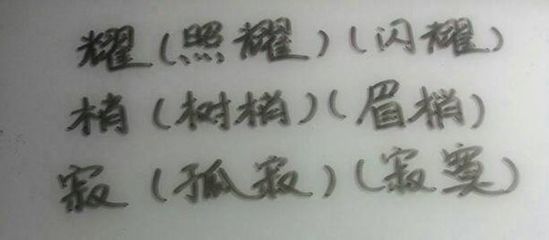 耀（照耀）（闪耀）
梢（树梢）（眉梢）
寂（孤寂）（寂寞）